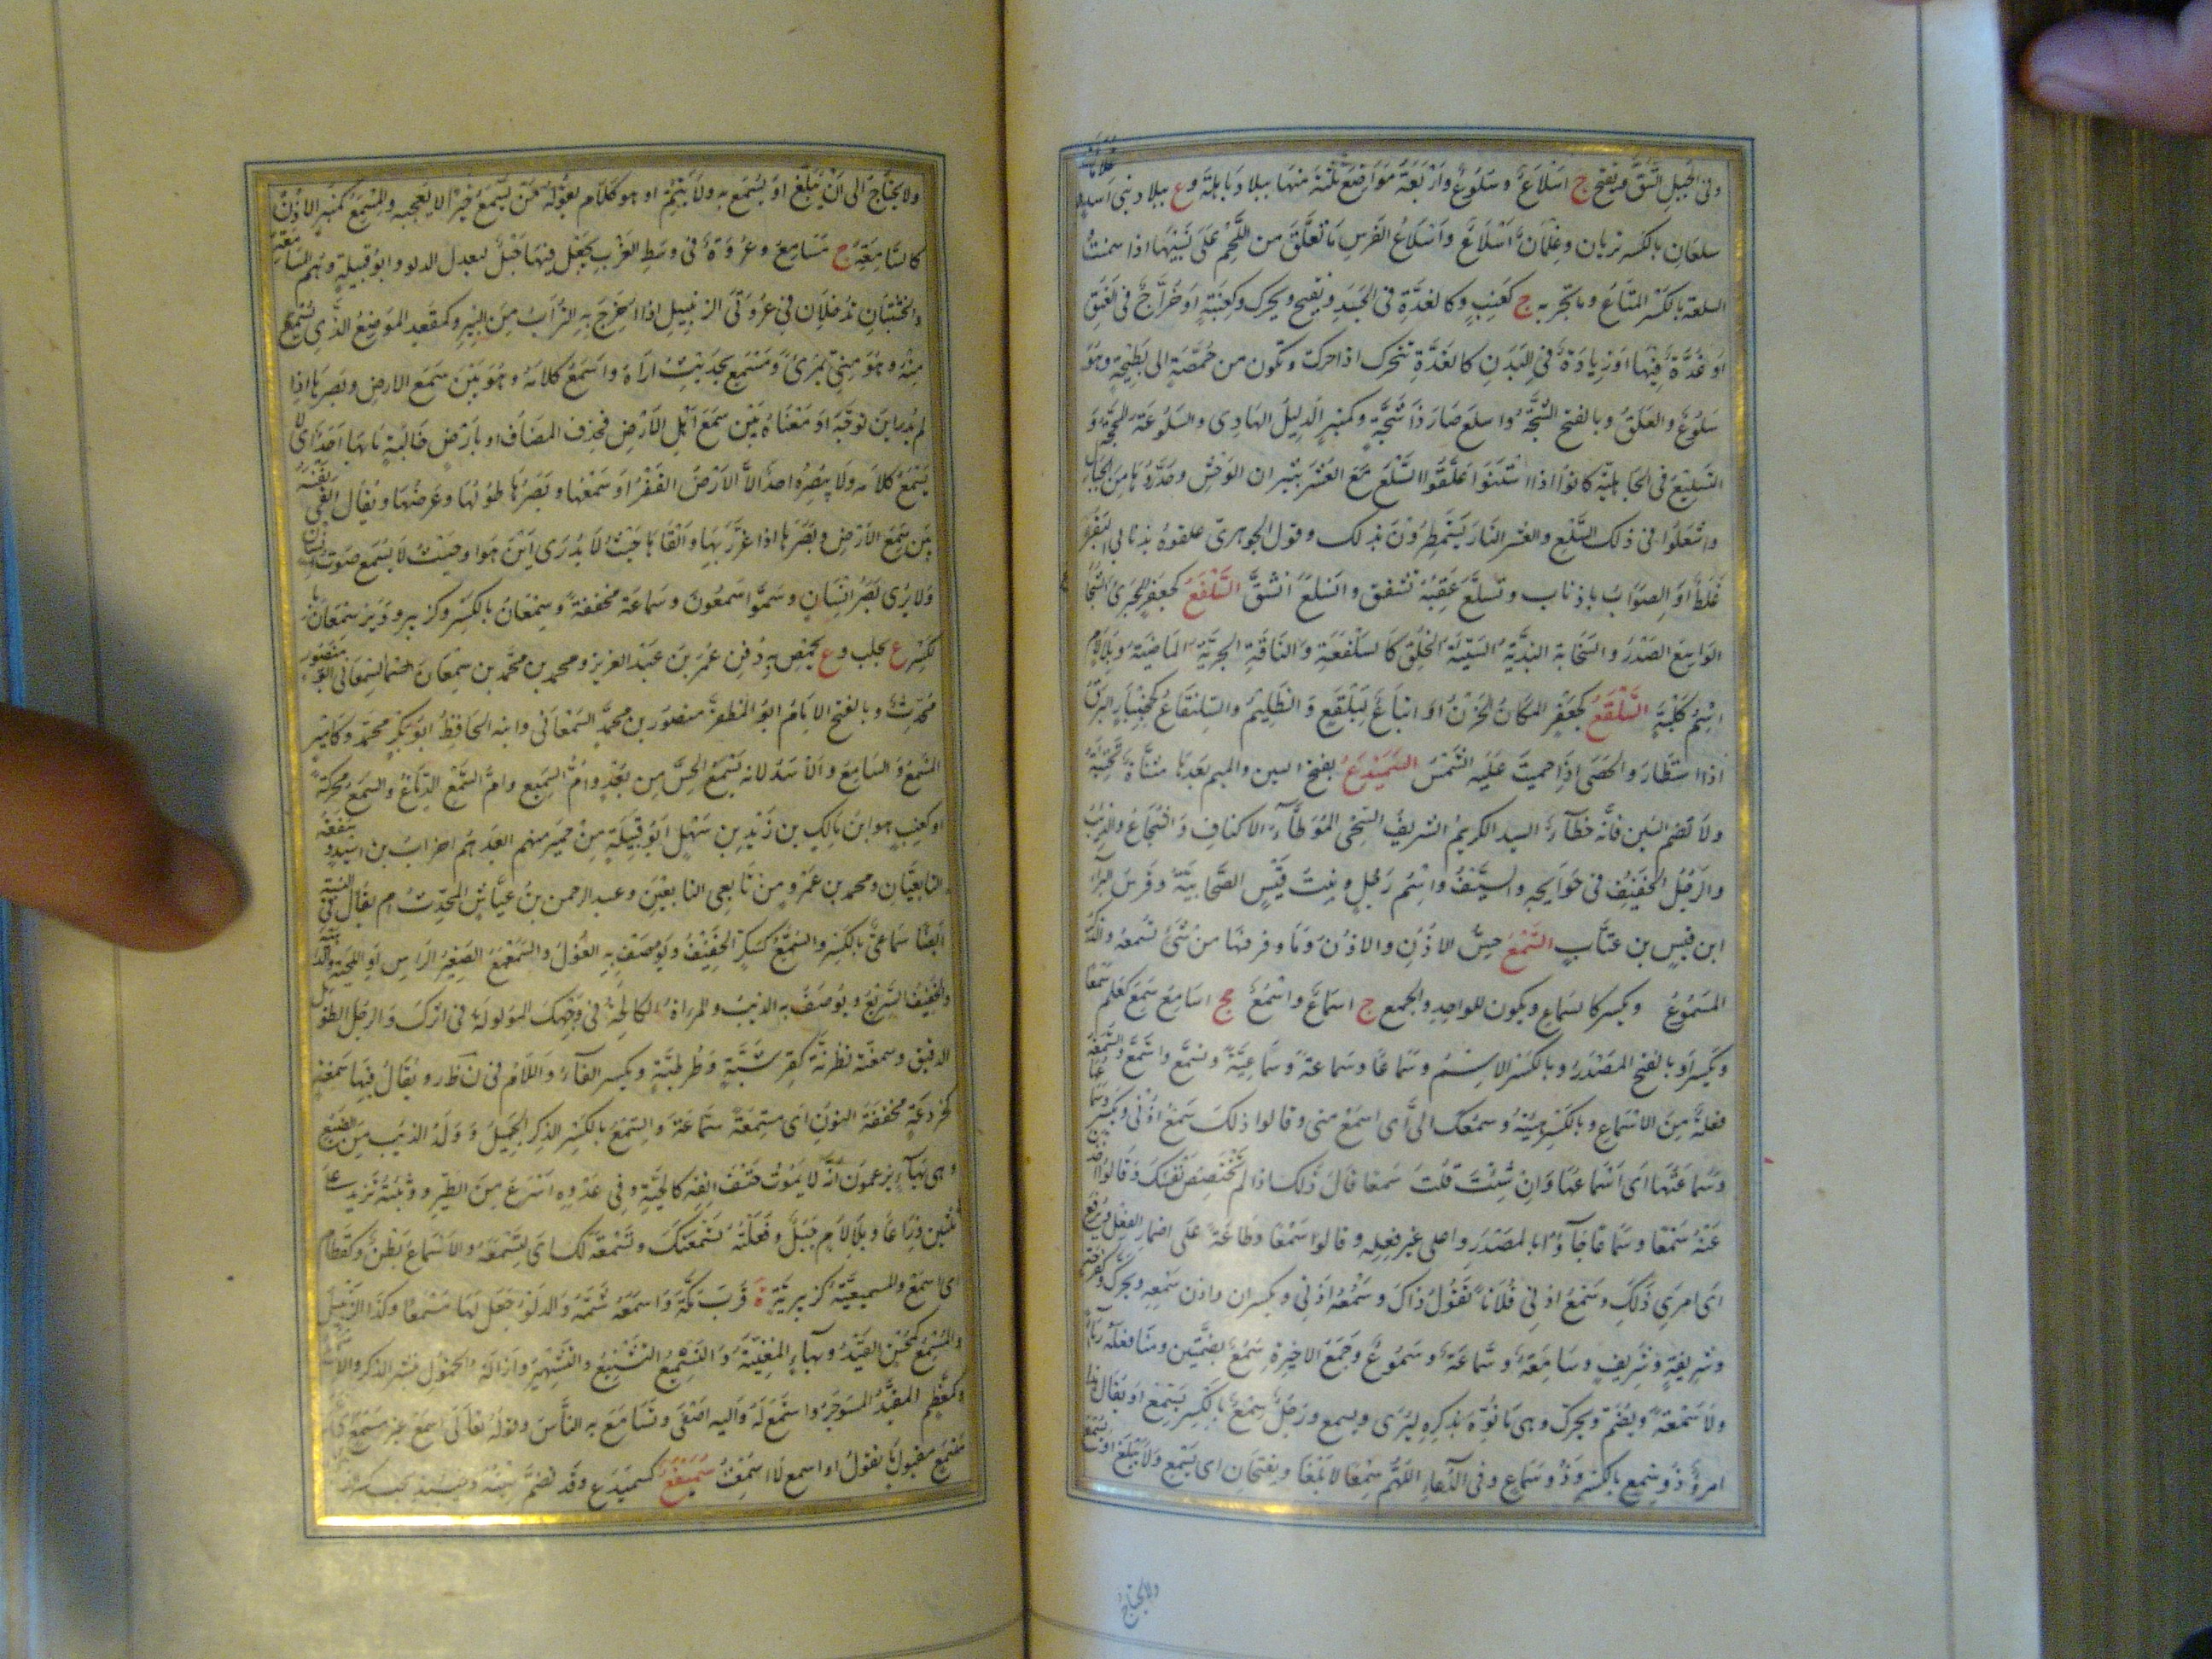 وفى الجبل الشق ويفتح ج اسلاع وسلوع واربعة مواضع ثلثة منها ببلاد باهلة وع ببلاد بنى اسد
سلعان بالكسر تربان وغلمان اسلاع واسلاع الفرس ما تعلق من اللحم على نسييها اذا سمنت
السلعة بالكسر المتاع وما تجر به ج كعنب وكالغدة فى الجسد ويفتح ويحرك وكعنبة او خراج فى العنق
او غدة فيها او زيادة فى البدن كالغدة تتحرك اذا حركت وتكون من حمصة الى بطيخة وهو
سلوع والعلق وبالفتح الشجة واسلع صار ذا شجة وكمنبر الدليل الهادى والسلوعة المحجة و
التسليع فى الجاهلية كانوا اذا اسنتوا علقوا السلع مع العشر بثيران الوحش وحدروها من الجبال
واشعلوا فى ذلك السلع والعشر النار يستمطرون بذلك وقول الجوهرى علقوه بذنابى البقر
غلط او الصواب باذناب وتسلع عقبه تشقق وانسلع انشق السلفع كجعفر الجرى الشجاع
الواسع الصدر والسخابة البذية السيئة الخلق كالسلفعة والناقة الجرية الماضية وبلا لام
اسم كلبة السلقع كجعفر المكان الحزن او اتباع لبلقع والظليم والسلنقاع كجحنبار البرق
اذا استطار والحصى اذا حميت عليه الشمس السميدع بفتح السين والميم بعدها مثناة تحتية
ولا تضم السين فانه خطآ السيد الكريم الشريف السخى الموطأ الاكناف والشجاع والذئب
والرجل الخفيف فى حوايجه والسيف واسم رجل وبنت قيس الصحابية وفرس البرآء
ابن قيس بن عتاب السمع حس الاذن والاذن وما وقر فيها من شئ تسمعه والذكر
المسموع ويكسر كالسماع ويكون للواحد والجمع ج اسماع واسمع جج اسامع سمع كعلم سمعا
ويكسر او بالفتح المصدر وبالكسر الاسم وسماعا وسماعة وسماعية وتسمع واسمع والسمعة
فعلة من الاسماع وبالكسر هيئته وسمعك الى اى اسمع منى وقالوا ذلك سمع اذنى ويكسر
وسماعتها اى اسماعها وان شئت قلت سمعا قال ذلك اذا لم تختصص نفسك وقالوا
عنه سمعا وسماعا جآؤا بالمصدر على غير فعله وقالوا سمعا وطاعة على اضمار الفعل ويرفع
اى امرى ذلك وسمع اذنى فلانا يقول ذاك وسمعة اذنى ويكسران واذن سمعة ويحرك وكفرحة
وشريفة وشريف وسامعة وسماعة وسموع وجمع الاخيرة سمع بضمتين وما فعله رياء
ولا سمعة ويضم ويحرك وهى ما نوه بذكره ليرى ويسمع ورجل سمع بالكسر يسمع او يقال هذا
امرؤ ذو سمع بالكسر وذو سماع وفى الدعاء اللهم سمعا لا بلغا ويفتحان اى يسمع ولا يبلغ او يسمع
ولا يحتاج
ولا يحتاج الى ان يبلغ او يسمع به ولا يتم او هو كلام يقوله من يسمع خبرا لا يعجبه والمسمع كمنبر الاذن
كالسامعة ج مسامع وعروة فى وسط الغرب يجعل فيها حبل ليعدل الدلو وابو قبيلة وهم المسامعة
والخشبتان تدخلان فى عروتى الزنبيل اذا اخرج به التراب من البئر وكمقعد الموضع الذى تسمع
منه وهو منى بمرئ ومسمع بحديث اراه واسمع كلامه وهو بين سمع الارض وبصرها اذا
لم يدر اين توجه او معناه بين سمع اهل الارض فحذف المضاف او بارض خالية ما بها احد اى لا
يسمع كلامه ولا يبصره احد الا الارض القفر او سمعها وبصرها طولها وعرضها ويقال القى نفسه
بين سمع الارض وبصرها اذا غرر بها والقاها حيث لا يدرى اين هو او حيث لا يسمع صوت انسان
ولا يرى بصر انسان وسموا سمعون وسماعة مخففة وسمعان بالكسر وكزبير ودير سمعان
بكسر ع بحلب وع بحمص به دفن عمر بن عبد العزيز ومحمد بن محمد بن سمعان السمعانى ابو منصور
محدث وبالفتح الامام ابو المظفر منصور بن محمد السمعانى وابنه الحافظ ابو بكر محمد وكامير
السمع والسامع والاسد لانه يسمع الحس من بعد وام السميع وام السمع الدماغ والسمع محركة
او كعنب هو ابن مالك بن زيد بن سهل ابو قبيلة من حمير منهم ابو رهم احزاب بن اسيد وشفعة
التابعيان ومحمد بن عمرو من تابعى التابعين وعبد الرحمن بن عياش المحدث ام يقال فى النسبة
ايضا سماعى بالكسر والسمع كسكر الخفيف ويوصف به الغول والسمعمع الصغير الراس او اللحية
والخفيف السريع ويوصف به الذئب والمراة الكالحة فى وجهك المولولة فى اثرك والرجل الطويل
الدقيق وسمعنة نظرنة كقرشبة وطرطبة ويكسر الفاء واللام فى ن ظ ر ويقال فيها سمعنة
كخروعة مخففة النون اى مستمعة سماعة والسمع بالكسر الذكر الجميل وولد الذئب من الضبع
وهى بهاء يزعمون انه لا يموت حتف انفه كالحية وفى عدوه اسرع من الطير ووثبته تزيد على
ثلثين ذراعا وبلا لام جبل وفعلته تسمعتك وتسمعة لك اى لتسمعه والاسماع بطن وكقطام
اى اسمع والسميعية كزبيرية ة قرب مكة واسمعه شتمه والدلو جعل لها مسمعا وكذا الزنبيل
والمسمع كمحسن القيد وبهاء المغنية والتسميع التشنيع والتشهير وازالة الخمول بنشر الذكر والاسماع
وكمعظم المقيد المسوجر واستمع له واليه اصغى وتسامع به الناس وقوله تعالى اسمع غير مسمع اى
غير مقبول ما تقول او اسمع لا اسمعت سميفع كسميدع وقد تضم سينه